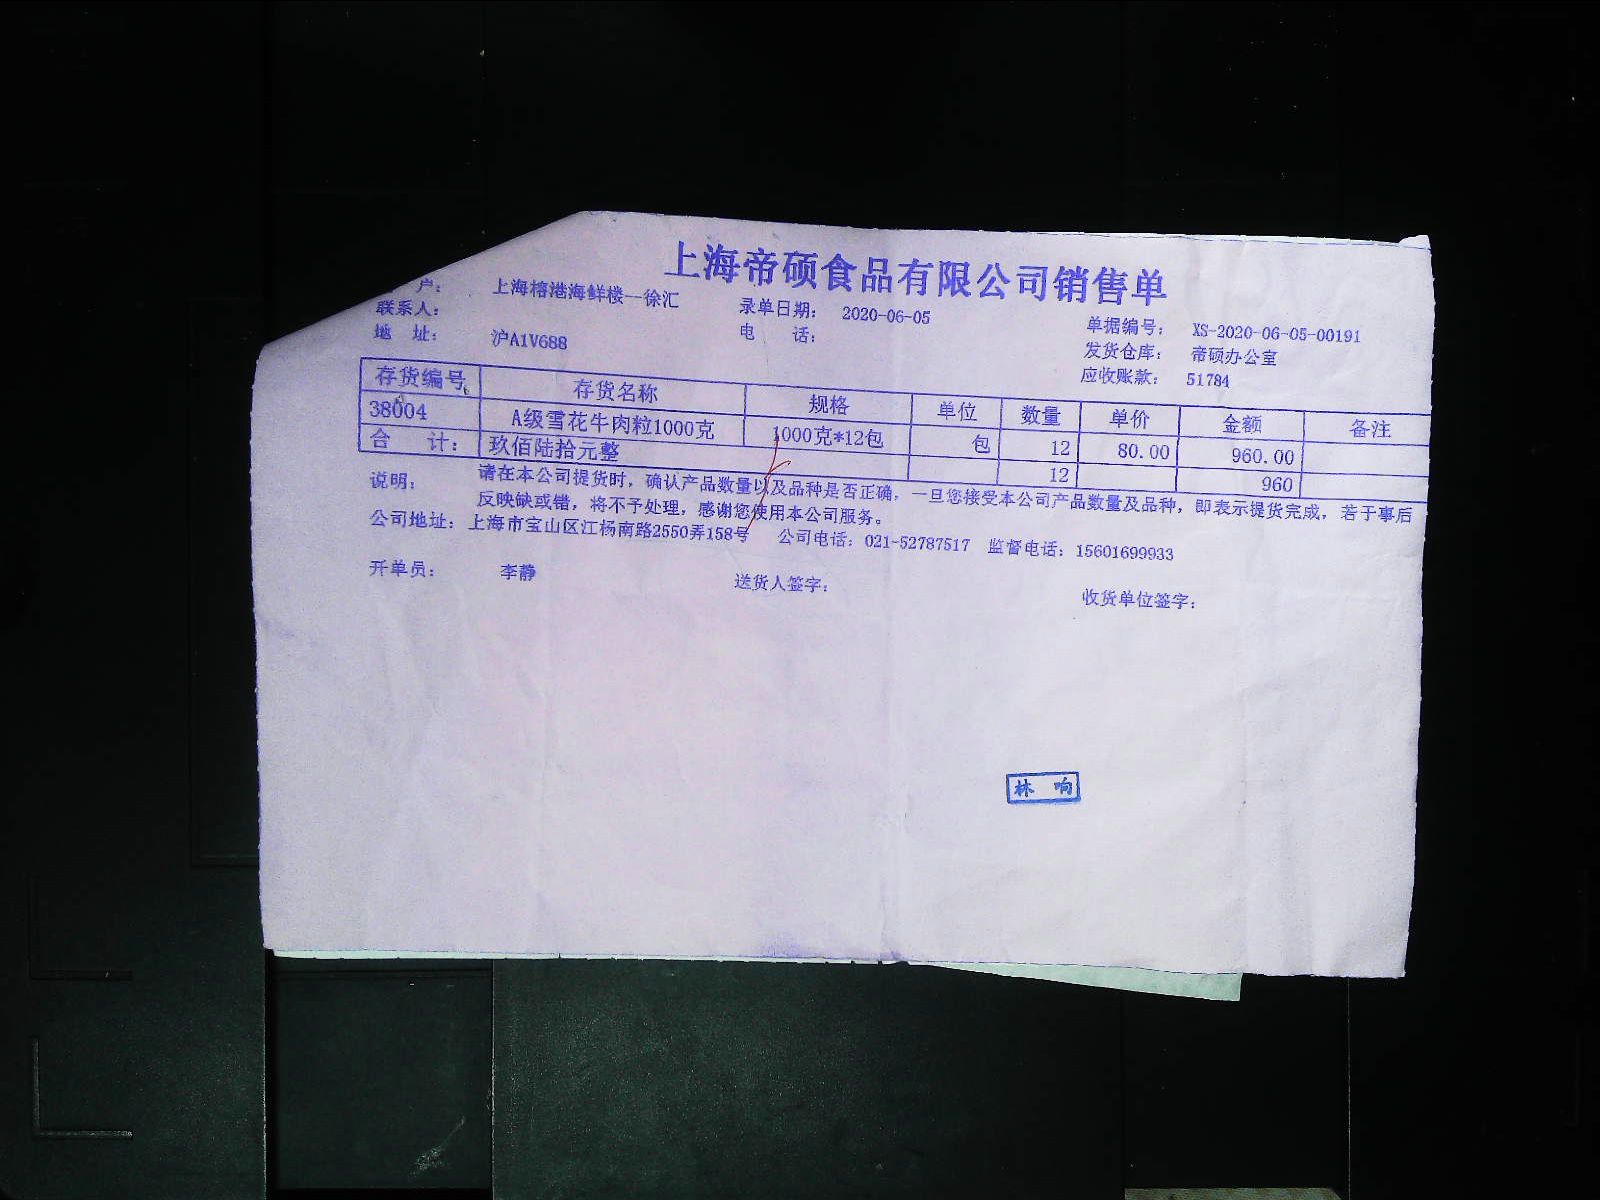 上海帝硕食品有限公司销售单
户： 上海榕港海鲜楼--徐汇 录单日期： 2020-06-05 单据编号： XS-2020-06-05-00191
联系人： 电 话： 发货仓库： 帝硕办公室
地 址： 沪A1V688 应收账款： 51784
存货编号 存货名称 规格 单位 数量 单价 金额 备注
38004 A级雪花牛肉粒1000克 1000克*12包 包 12 80.00 960.00
合 计： 玖佰陆拾元整 12 960
说明： 请在本公司提货时，确认产品数量以及品种是否正确，一旦您接受本公司产品数量及品种，即表示提货完成，若于事后
反映缺或错，将不予处理，感谢您使用本公司服务。
公司地址： 上海市宝山区江杨南路2550弄158号 公司电话：021-52787517 监督电话：15601699933
开单员： 李静 送货人签字： 收货单位签字：
林 响